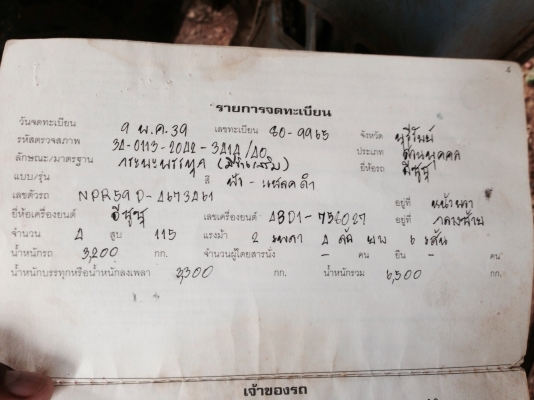 รายการจดทะเบียน
วันจดทะเบียน 9 พ.ค.39 เลขทะเบียน 80-9965 จังหวัด บุรีรัมย์
รหัสตรวจสภาพ 34-0113-2042-3414/40 ประเภท ส่วนบุคคล
ลักษณะ/มาตรฐาน กระบะบรรทุก (มีข้างเสริม) ยี่ห้อรถ อีซูซุ
แบบ/รุ่น สี ฟ้า-แดงดำ
เลขตัวรถ NPR59D-4673461 อยู่ที่ หน้าขวา
ยี่ห้อเครื่องยนต์ อีซูซุ เลขเครื่องยนต์ 4BD1-756027 อยู่ที่ กลางซ้าย
จำนวน 4 สูบ 115 แรงม้า 2 เพลา 4 ล้อ ยาง 6 เส้น
น้ำหนักรถ 3,200 กก. จำนวนผู้โดยสารนั่ง - คน ยืน - คน
น้ำหนักบรรทุกหรือน้ำหนักลงเพลา 3,300 กก. น้ำหนักรวม 6,500 กก.
เจ้าของรถ